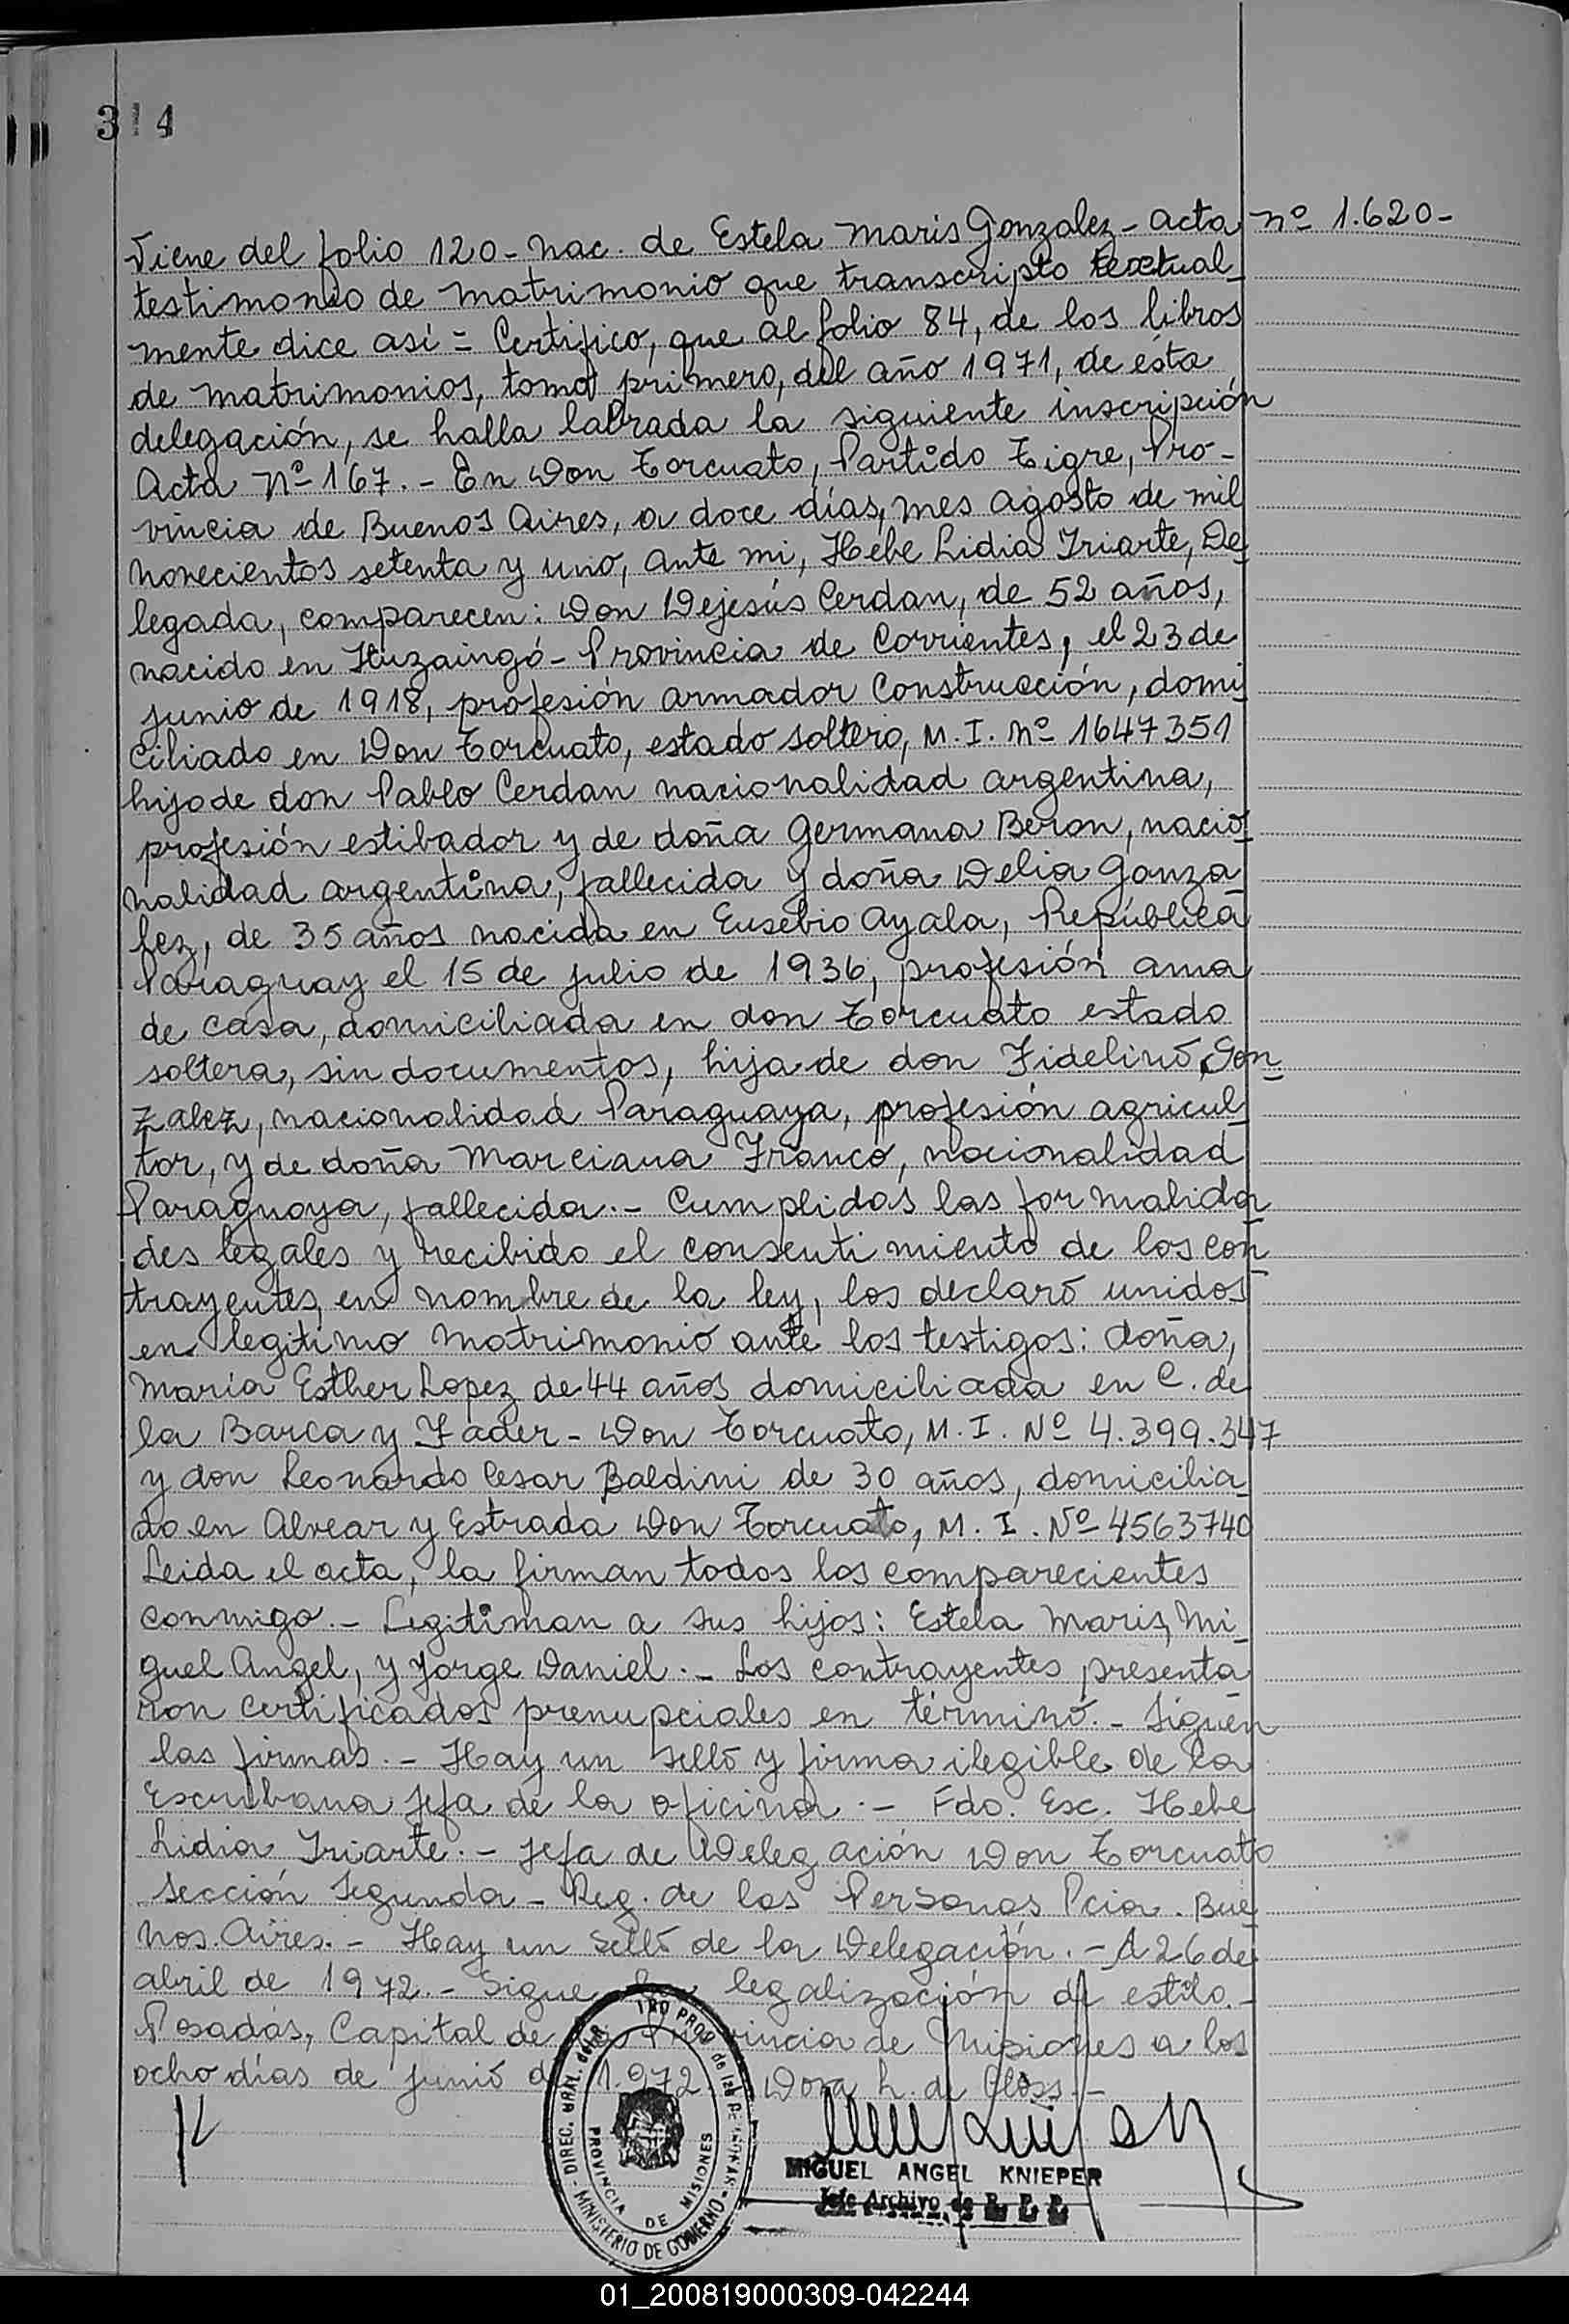 3 4
Viene del folio 120- Nac. de Estela Maris Gonzalez- acta nº 1.620-
testimonio de matrimonio que transcripto textual-
mente dice así = Certifico, que al folio 84, de los libros
de matrimonios, tomo primero, del año 1971, de ésta
delegación, se halla labrada la siguiente inscripción
Acta Nº 167.- En Don Torcuato, Partido Tigre, Pro-
vincia de Buenos Aires, a doce días, mes agosto de mil
novecientos setenta y uno, ante mi, Hebe Lidia Iriarte, De-
legada, comparecen: Don Dejesús Cerdan, de 52 años,
nacido en Ituzaingó- Provincia de Corrientes, el 23 de
junio de 1918, profesión armador construcción, domi-
ciliado en Don Torcuato, estado soltero, M.I. Nº 1647351
hijo de don Pablo Cerdan nacionalidad argentina,
profesión estibador y de doña Germana Beron, nacio-
nalidad argentina, fallecida y doña Delia Gonza-
lez, de 35 años nacida en Eusebio Ayala, República
Paraguay el 15 de julio de 1936, profesión ama
de casa, domiciliada en don Torcuato estado
soltera, sin documentos, hija de don Fidelino Gon-
zalez, nacionalidad Paraguaya, profesión agricul-
tor, y de doña Marciana Franco, nacionalidad
Paraguaya, fallecida.- Cumplidas las formalida-
des legales y recibido el consentimiento de los con-
trayentes, en nombre de la ley, los declaro unidos
en legitimo matrimonio ante los testigos: doña,
María Esther Lopez de 44 años domiciliada en C. de
la Barca y Fader- Don Torcuato, M.I. Nº 4.399.347
y don Leonardo Cesar Baldini de 30 años, domicilia-
do en Alvear y Estrada Don Torcuato, M.I. Nº 4563740
Leida el acta, la firman todos los comparecientes
conmigo.- Legitiman a sus hijos: Estela Maris, Mi-
guel Angel, y Jorge Daniel.- Los contrayentes presenta-
ron certificados prenupciales en término.- Siguen
las firmas.- Hay un sello y firma ilegible de la
Escribana Jefa de la oficina.- Fdo. Esc. Hebe
Lidia Iriarte.- Jefa de Delegación Don Torcuato
Sección Segunda- Reg. de las Personas Pcia. Bue-
nos Aires.- Hay un sello de la Delegación.- A 26 de
abril de 1972.- Sigue legalización de estilo.-
Posadas, Capital de la Provincia de Misiones a los
ocho días de junio de 1.972 Dora h. de Closs.-
DIREC. GRAL. del R.
PROVINCIA DE MISIONES
MINISTERIO DE GOBIERNO
MIGUEL ANGEL KNIEPER
Jefe Archivo de R. P. P.
01_200819000309-042244